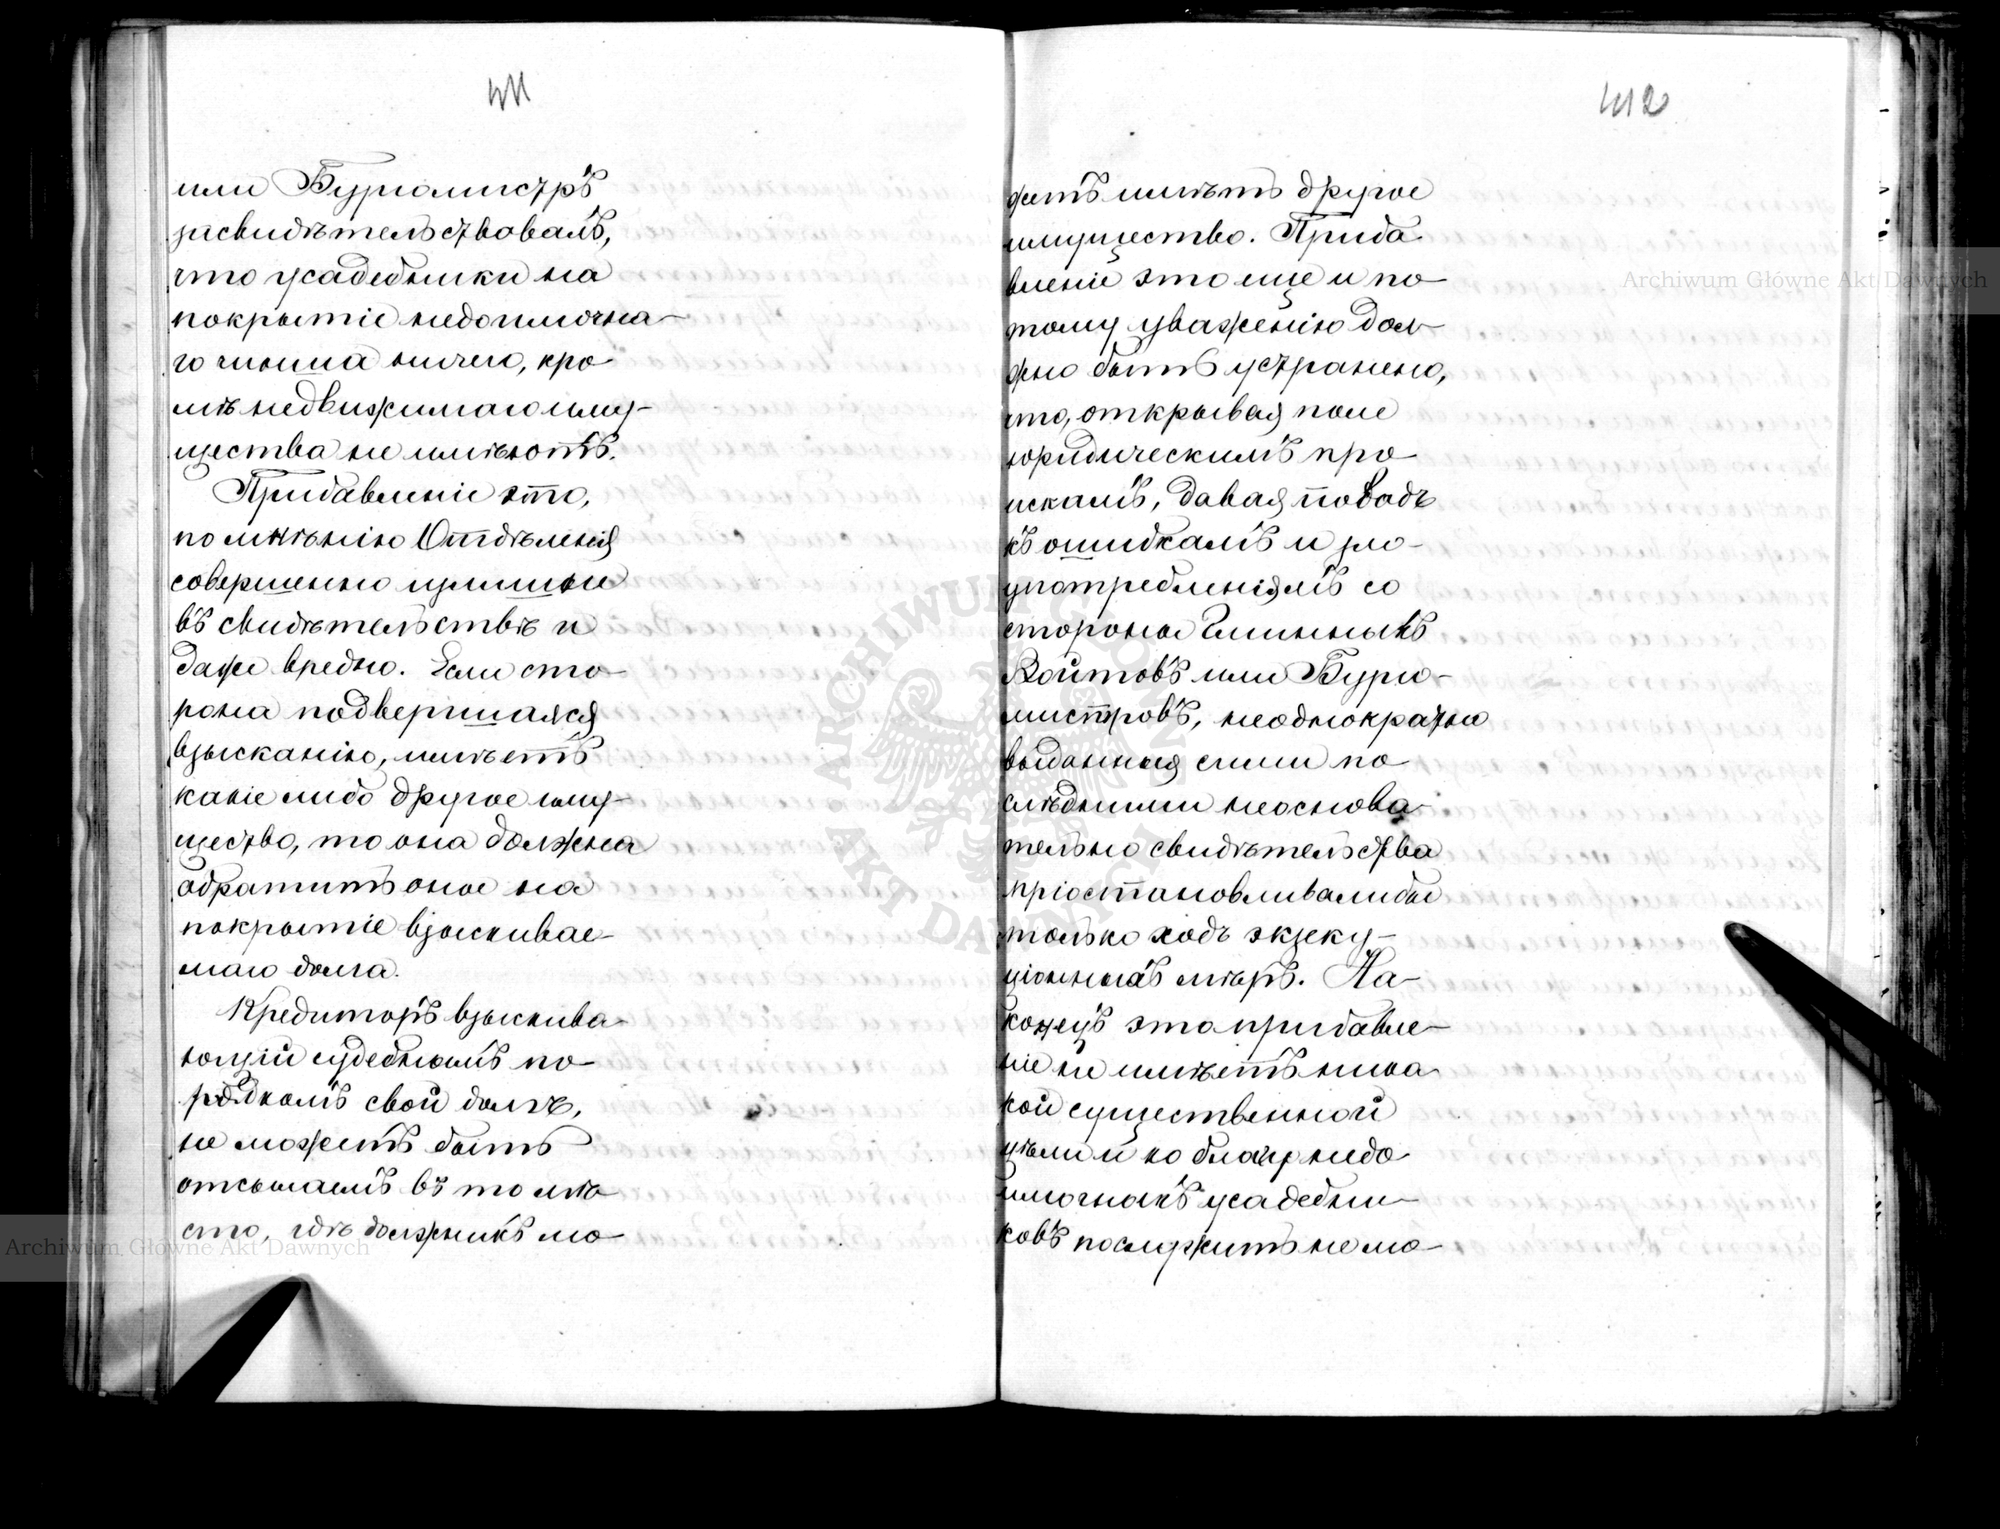 411
или Бургомистръ
засвидѣтельствовалъ,
что усадебники на
покрытіе недоимочна-
го чинша ничего, кро
мѣ недвижимаго иму-
щества не имѣютъ.
Прибавленіе это,
по мнѣнію Отдѣленія
совершенно излишне
въ свидѣтельствѣ и
даже вредно. Если сто-
рона подвергшаяся
взысканію, имѣетъ
какое либо другое иму-
щество, то она должна
обратить оное на
покрытіе взыскивае-
маго долга.
Кредиторъ взыскива-
ющій судебнымъ по-
рядкомъ свой долгъ,
не можетъ быть
отсылаемъ въ то мѣ-
сто, гдѣ должникъ мо-
412
жетъ имѣть другое
имущество. Приба-
вленіе это еще и по-
тому уваженію дол-
жно быть устранено,
что, открывая поле
юридическимъ про-
искамъ, давая поводъ
къ ошибкамъ и зло-
употребленіямъ со
стороны Гминныхъ
Войтовъ или Бурго-
мистровъ, неоднократно
выданныя сими по-
слѣдними неоснова-
тельно свидѣтельства
пріостановливали бы
только ходъ экзеку-
ціонныхъ мѣръ. На-
конецъ это прибавле-
ніе не имѣетъ ника-
кой существенной
цѣли и ко благу недо-
имочныхъ усадебни-
ковъ послужить не мо-
Archiwum Główne Akt Dawnych
Archiwum Główne Akt Dawnych
ARCHIWUM GŁÓWNE
AKT DAWNYCH